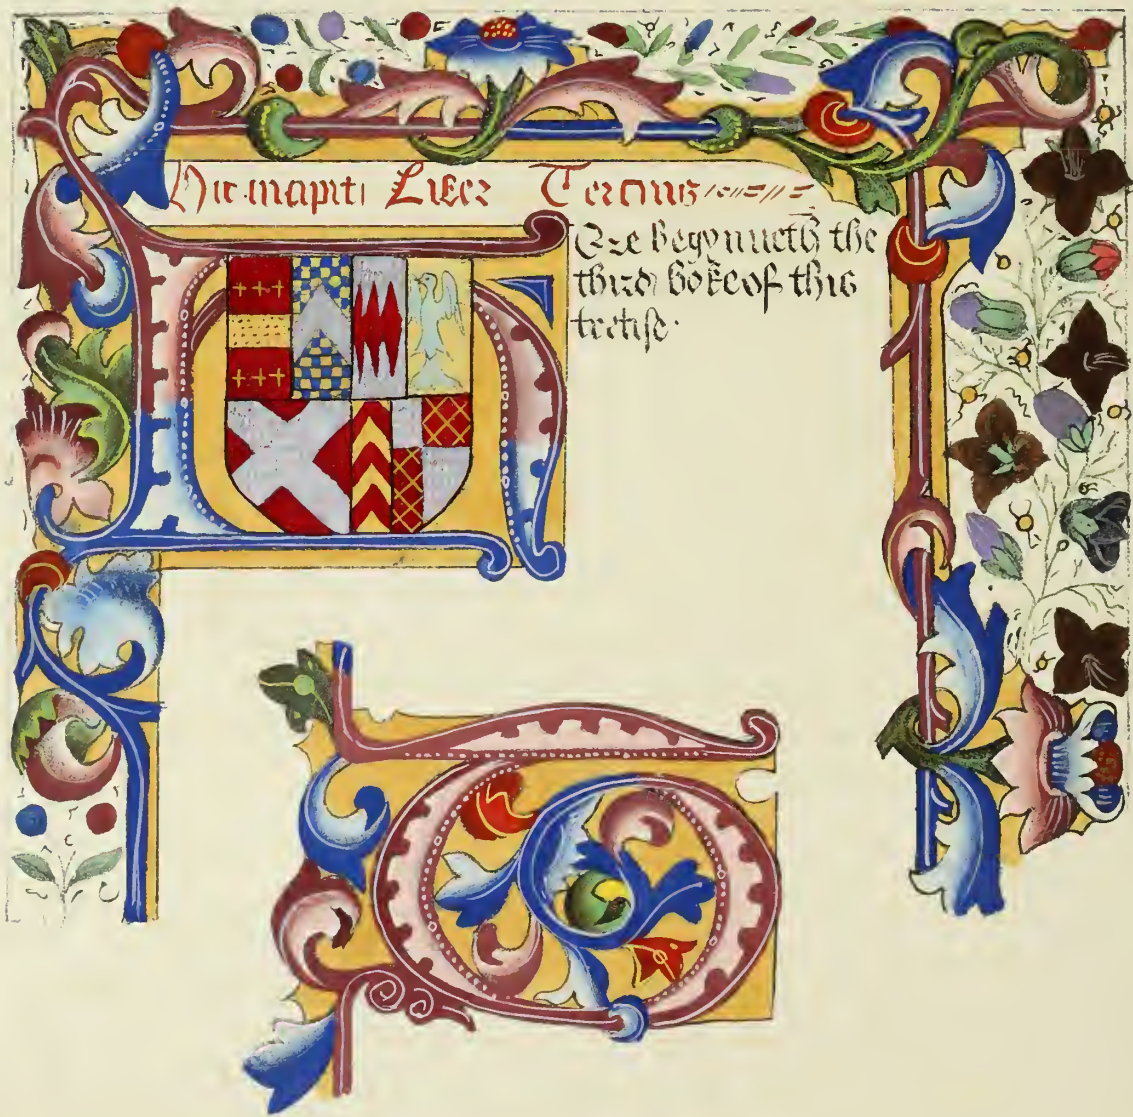 Hic incipit Liber Tercius
Ere begynneth the
third boke of this
tretise.